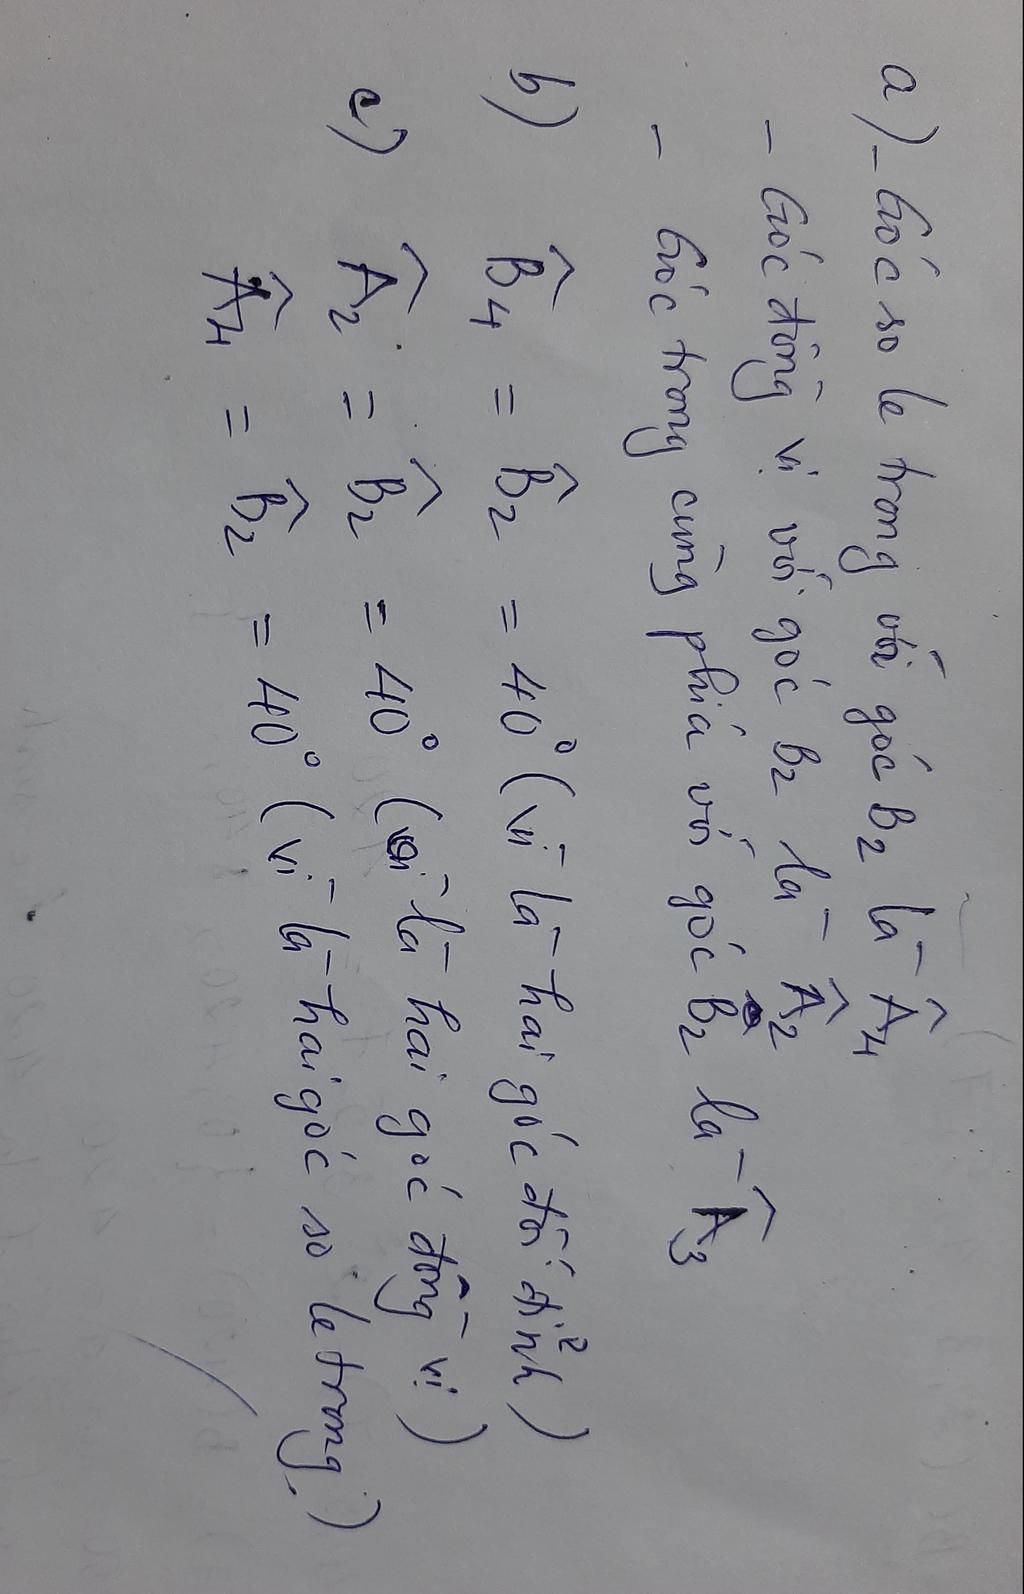 a) - Góc so le trong với góc B₂ là Â₄
- Góc đồng vị với góc B₂ là Â₂
- Góc trong cùng phía với góc B₂ là Â₃
b) B̂₄ = B̂₂ = 40° (vì là hai góc đối đỉnh)
c) Â₂ = B̂₂ = 40° (vì là hai góc đồng vị)
Â₄ = B̂₂ = 40° (vì là hai góc so le trong)